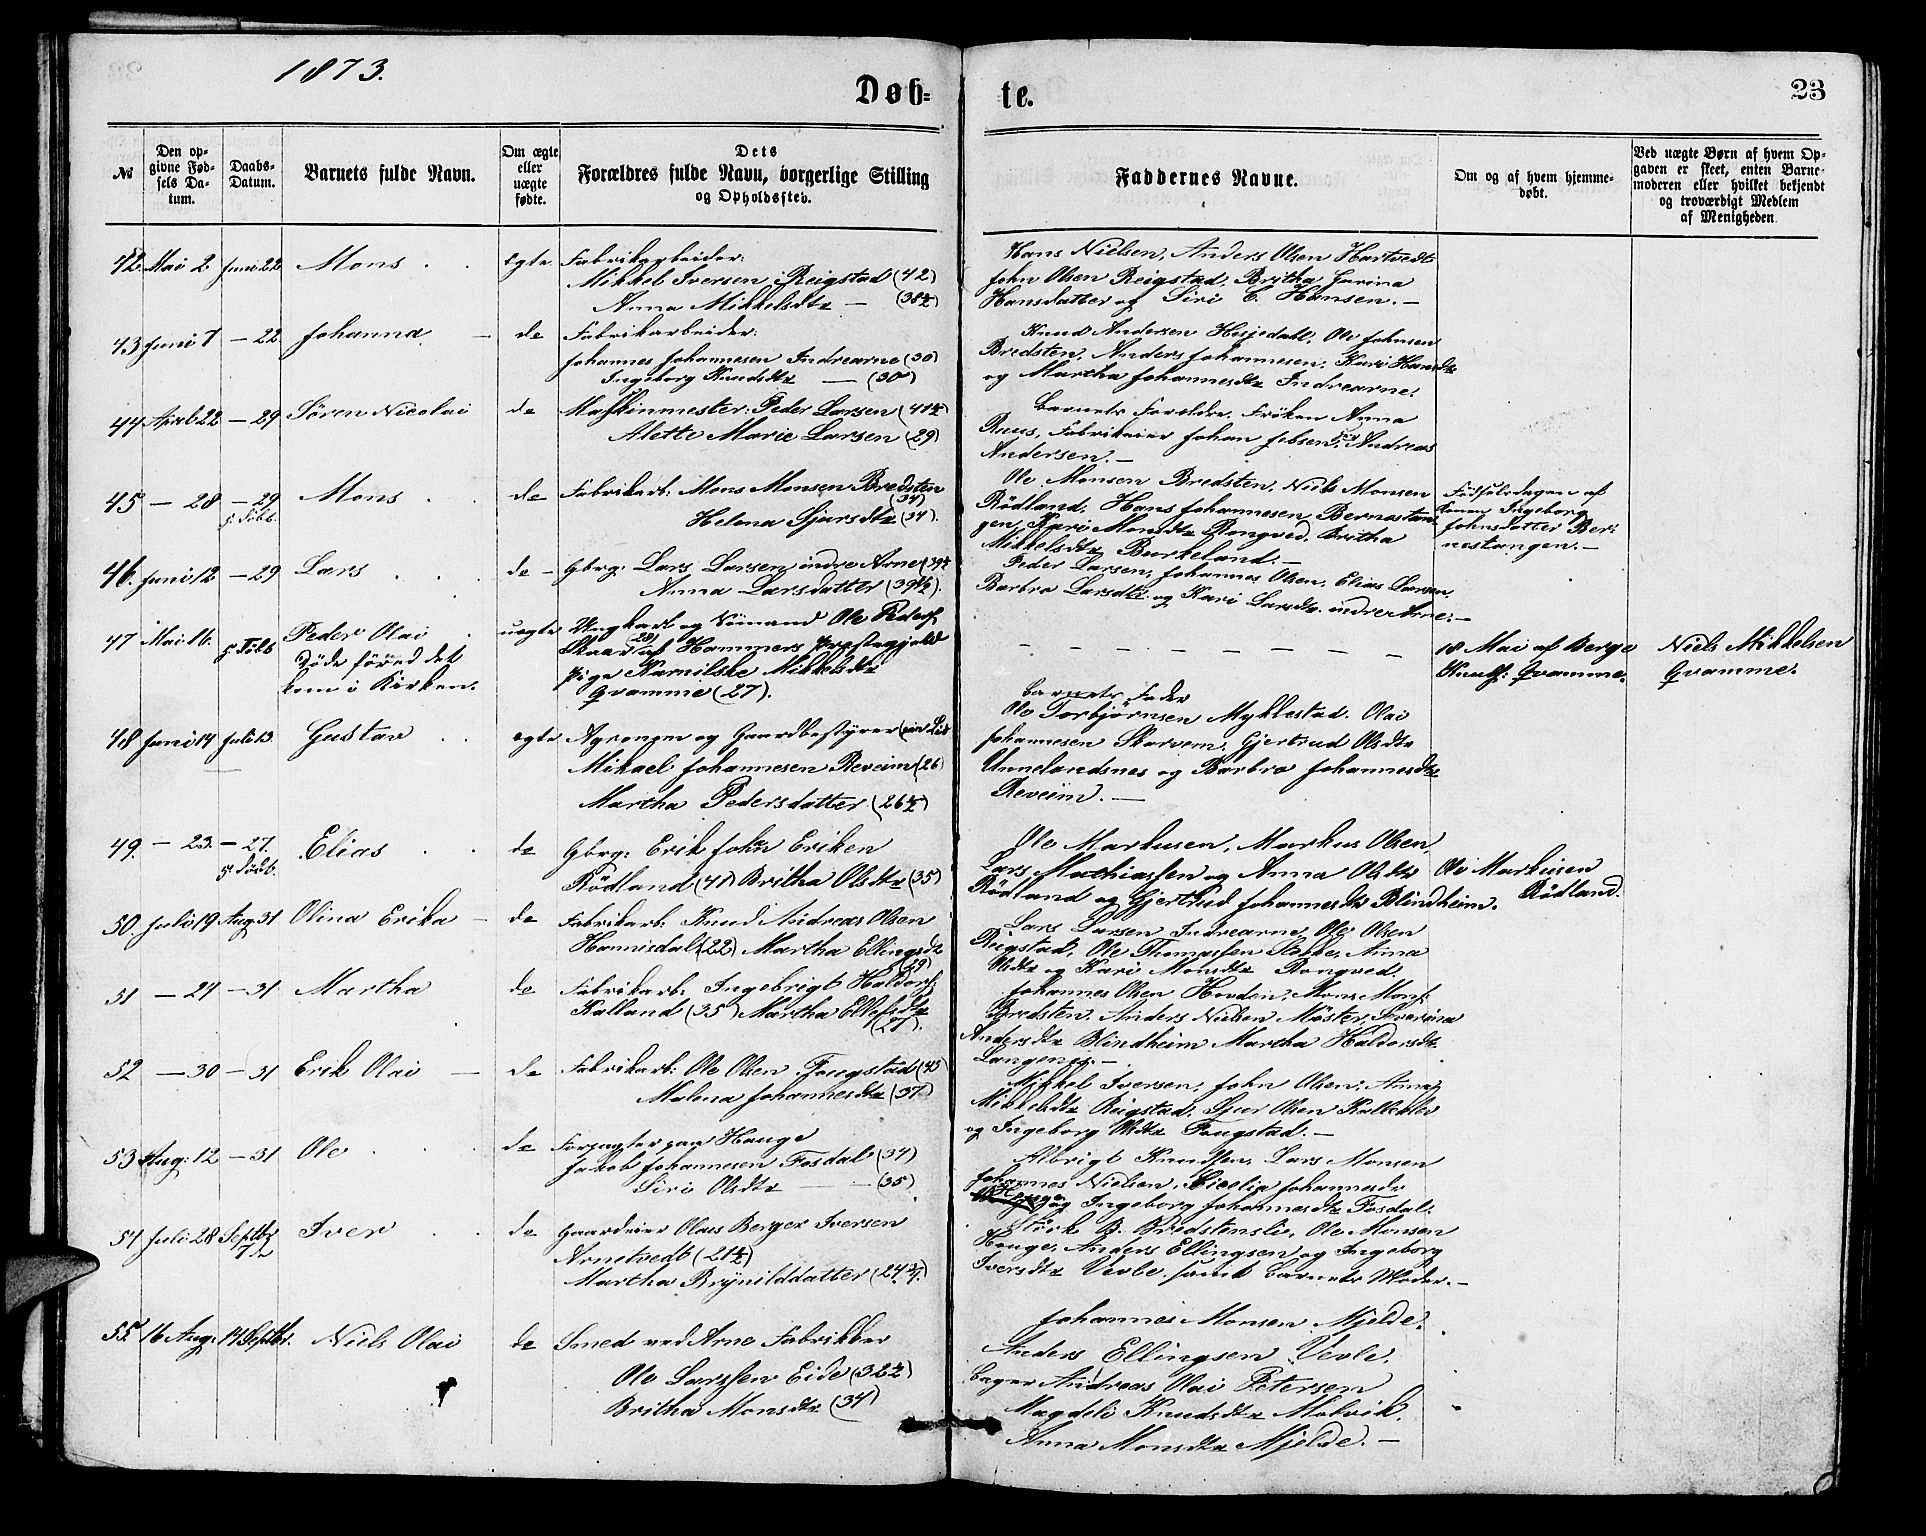 1873.
Døb=
te.
23
№
Den op-
givne Fød-
sels Da-
tum.
Daabs-
Datum.
Barnets fulde Navn.
Om ægte
eller
uægte
fødte.
Dets
Forældres fulde Navn, borgerlige Stilling
og Opholdssted.
Faddernes Navne.
Om og af hvem hjemme-
døbt.
Ved uægte Børn af hvem Op-
gaven er skeet, enten Barne-
moderen eller hvilket bekjendt
og troværdigt Medlem
af Menigheden
42. Mai 2 Juni 22 Mons egte Fabrikarbeider:
Mikkel Iversen Reigstad (42)
Anna Mikkelsdtr — (38½)
Hans Nielsen, Anders Olsen Hartvedt
John Olsen Reigstad, Britha Gurina
Hansdatter og Siri E. Hansen.—
43 Juni 7 — 22 Johanna — do Fabrikarbeider:
Johannes Johannesen Indrearne (30)
Ingeborg Knudsdtr — (30)
Knud Andersen Hesjedahl, Ole Johnsen
Bredsten, Anders Johannesen, Kari Hansdtr
og Martha Johannesdtr Indrearne.
44 April 22 — 29 Søren Nicolai do Maskinmester: Peder Larsen (41½)
Alette Marie Larsen (29)
Barnets Forældre, Frøken Anna
Ruus, Fabrikeier Johan Jebsen, Andreas
Andersen.—
45 — 28 — 29 Mons do Fabrikarb: Mons Monsen Bredsten
(34)
Helena Sjursdtr (34).
Ole Monsen Bredsten, Niels Monsen
Rødland, Hans Johannesen Bernestan
gen, Kari Monsdtr Rongved, Britha
Mikkelsdtr Burkeland.—
Fødselsdagen af
Konen Ingeborg
Johnsdatter Ber:
nestangen.—
46. Juni 12 — 29 Lars do — Gbrg: Lars Larsen indre Arne (39½
Anna Larsdatter (39½).
Peder Larsen, Johannes Olsen, Elias Larsen,
Barbro Larsdtr og Kari Larsdtr indre Arne.—
47 Mai 16. Peder Olai uegte Ungkarl og Sømand Ole Peders:
Døde førend det Skaar (28) af Hammers Præstegjeld
kom i Kirken. Pige Karnilske Mikkelsdtr
Qvamme (27).
18 Mai af Berge
Knuds: Qvamme.
Niels Mikkelsen
Qvamme.
48 Juni 14 Juli 13 Gustav egte Agronom og Gaardbestyrer
Mikael Johannesen Reveim (26)
Martha Pedersdatter (26½)
Barnets Fader
Ole Torbjørnsen Myklestad, Olai
Johannesen Skarvem, Gjertrud Olsdtr
Unnelandsnes og Barbro Johannesdtr
Reveim.—
49. — 23 — 27. Elias do Gbrg: Erik John Eriken
Rødland (41) Britha Olsdtr (35)
Ole Markusen, Markus Olsen,
Lars Mathiassen og Anna Olsdtr
Rødland og Gjertrud Johannesdtr Blindheim.
Ole Markusen
Rødland.
50. Juli 19 Aug 31 Olina Erika — do Fabrikarb: Knud Andreas Olsen
Hannisdal (22) Martha Ellingsdtr
(29)
Lars Larsen Indrearne, Ole Olsen
Reigstad, Ole Thomassen Stokke, Anna
Olsdtr og Kari Monsdtr Rongved.
51 — 24 — 31 Martha do Fabrikarb: Ingebrigt Haldors:
Kalland (35) Martha Ellefsdtr
(27).
Johannes Olsen Hovden, Mons Mons:
Bredsten, Anders Nielsen Møster, Severina
Andersdtr Blindheim, Martha Haldorsdtr
Langenes.—
52 — 30 — 31 Erik Olai — do Fabrikarb: Ole Olsen Fougstad (43
Malena Johannesdtr (37)
Mikkel Iversen, John Olsen, Anna
Mikkelsdtr Reigstad, Sjur Olsen Kalleklev
og Ingeborg Olsdtr Fougstad.—
53 Aug: 12 — 31 Ole do Forpagter paa Hauge
Jakob Johannesen Fosdal (34)
Siri Olsdtr — — (35)
Albrigt Knudsen, Lars Monsen
Johannes Nielsen, Sicelia Johannesdr
Hauge og Ingeborg Johannesdtr Fosdal.
54 Juli 28 Septbr 7de Iver do Gaardeier Olaus Berger Iversen
Arnetvedt (21½)
Martha Brynilddatter (24¾).
Størk B. Bredstenslie, Ole Monsen
Hauge, Anders Ellingsen og Ingeborg
Iversdtr Vevle samt Barnets Moder.—
55 16 Aug: 14 Septbr. Niels Olai do Smed ved Arne Fabrikker
Ole Larssen Eide (32½)
Britha Monsdtr (34)
Johannes Monsen Mjelde.
Anders Ellingsen Vevle.
Bager Andreas Olai Petersen
Magdeli Knudsdtr Molvik.
Anna Monsdtr Mjelde.—